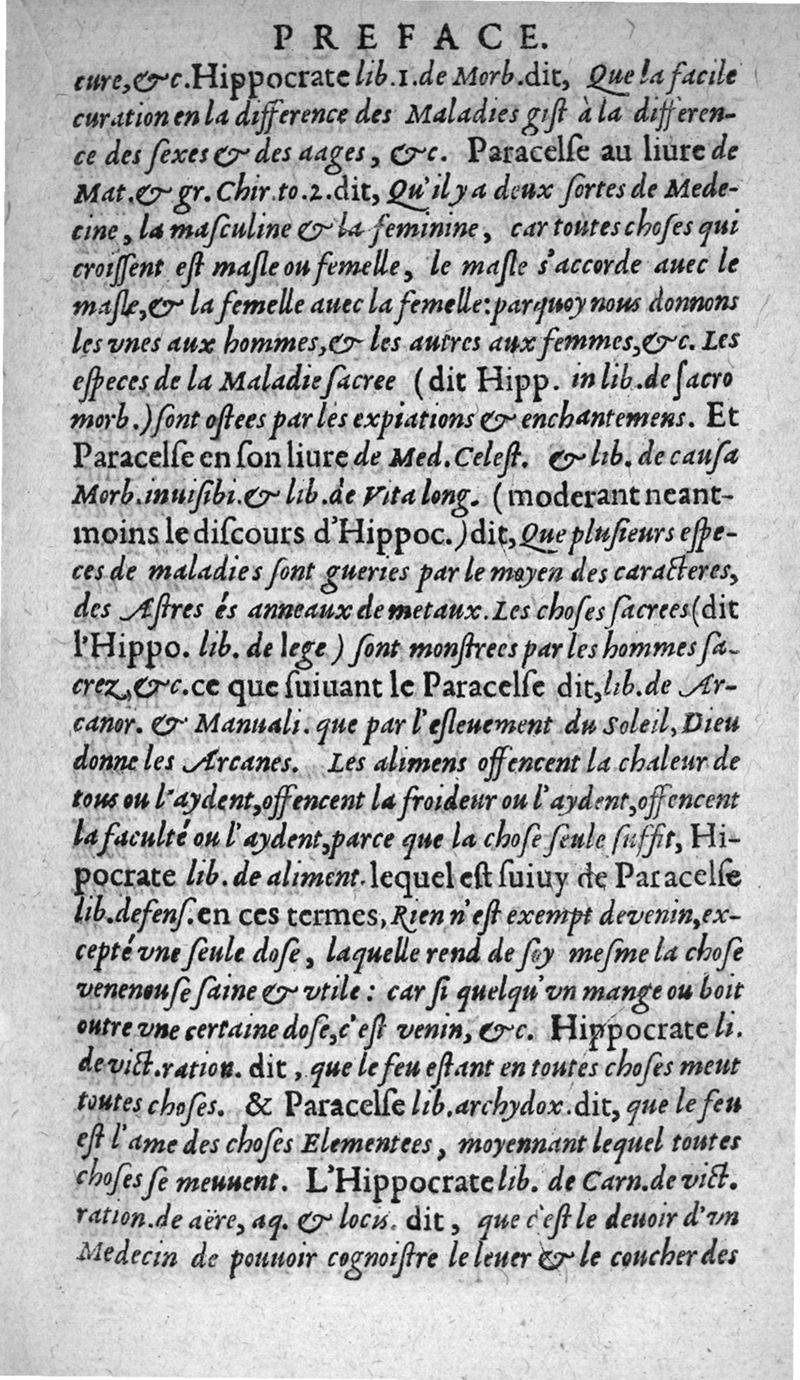 PREFACE.
cure, &c. Hippocrate lib. 1. de Morb. dit, Que la facile
curation en la difference des Maladies gist à la differen-
ce des ſexes & des aages, &c. Paracelſe au liure de
Mat. & gr. Chir. to. 2. dit, Qu'il y a deux ſortes de Mede-
cine, la maſculine & la feminine, car toutes choſes qui
croiſſent eſt maſle ou femelle, le maſle s'accorde auec le
maſle, & la femelle auec la femelle: parquoy nous donnons
les vnes aux hommes, & les autres aux femmes, &c. Les
eſpeces de la Maladie ſacree (dit Hipp. in lib. de ſacro
morb.) ſont oſtees par les expiations & enchantemens. Et
Paracelſe en ſon liure de Med. Celeſt. & lib. de cauſa
Morb. inuiſibi. & lib. de Vita long. (moderant neant-
moins le diſcours d'Hippoc.) dit, Que pluſieurs eſpe-
ces de maladies ſont gueries par le moyen des caracteres,
des Aſtres és anneaux de metaux. Les choſes ſacrees (dit
l'Hippo. lib. de lege) ſont monſtrees par les hommes ſa-
crez, &c. ce que ſuiuant le Paracelſe dit, lib. de Ar-
canor. & Manuali. que par l'eſleuement du Soleil, Dieu
donne les Arcanes. Les alimens offencent la chaleur de
tous ou l'aydent, offencent la froideur ou l'aydent, offencent
la faculté ou l'aydent, parce que la choſe ſeule ſuffit, Hi-
pocrate lib. de aliment. lequel eſt ſuiuy de Paracelſe
lib. defenſ. en ces termes, Rien n'eſt exempt de venin, ex-
cepté vne ſeule doſe, laquelle rend de ſoy meſme la choſe
veneneuſe ſaine & vtile: car ſi quelqu'vn mange ou boit
outre vne certaine doſe, c'eſt venin, &c. Hippocrate li.
de vict. ration. dit, que le feu eſtant en toutes choſes meut
toutes choſes. & Paracelſe lib. archydox. dit, que le feu
eſt l'ame des choſes Elementees, moyennant lequel toutes
choſes ſe meuuent. L'Hippocrate lib. de Carn. de vict.
ration. de aëre, aq. & locis. dit, que c'eſt le deuoir d'vn
Medecin de pouuoir cognoiſtre le leuer & le coucher des